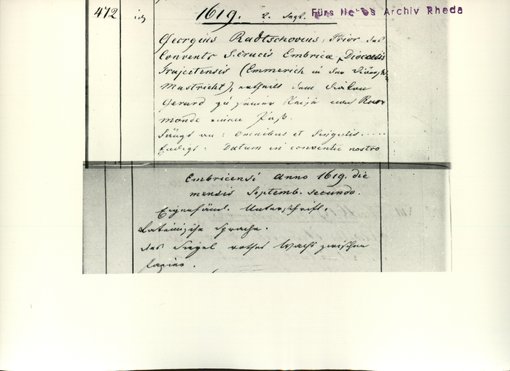 472
1619. 2. Sept. Fürstliches Archiv Rheda
Georgius Radtschovius, Prior des
Convents S. Crucis Embricae, Dioecesis
Trajectensis (Emmerich in der Diözese
Mastricht), ertheilt dem Diakon
Gerard zu seiner Reise nach Rur
monde einen Paß.
Fängt an: Omnibus et Singulis.....
Endigt: Datum in conventu nostro
Embricensi anno 1619. die
mensis Septemb. secundo.
Eigenhänd. Unterschrift.
Lateinische Sprache.
Das Siegel rothes Wachs zwischen
Papier.